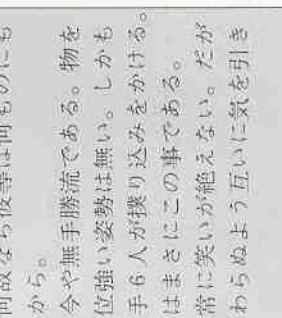 何故なら彼等は何ものにも
から。
今や無手勝流である。物を
位強い姿勢は無い。しかも
手6人が撲り込みをかける。
はまさにこの事である。
常に笑いが絶えない。だが
わらぬよう互いに気を引き